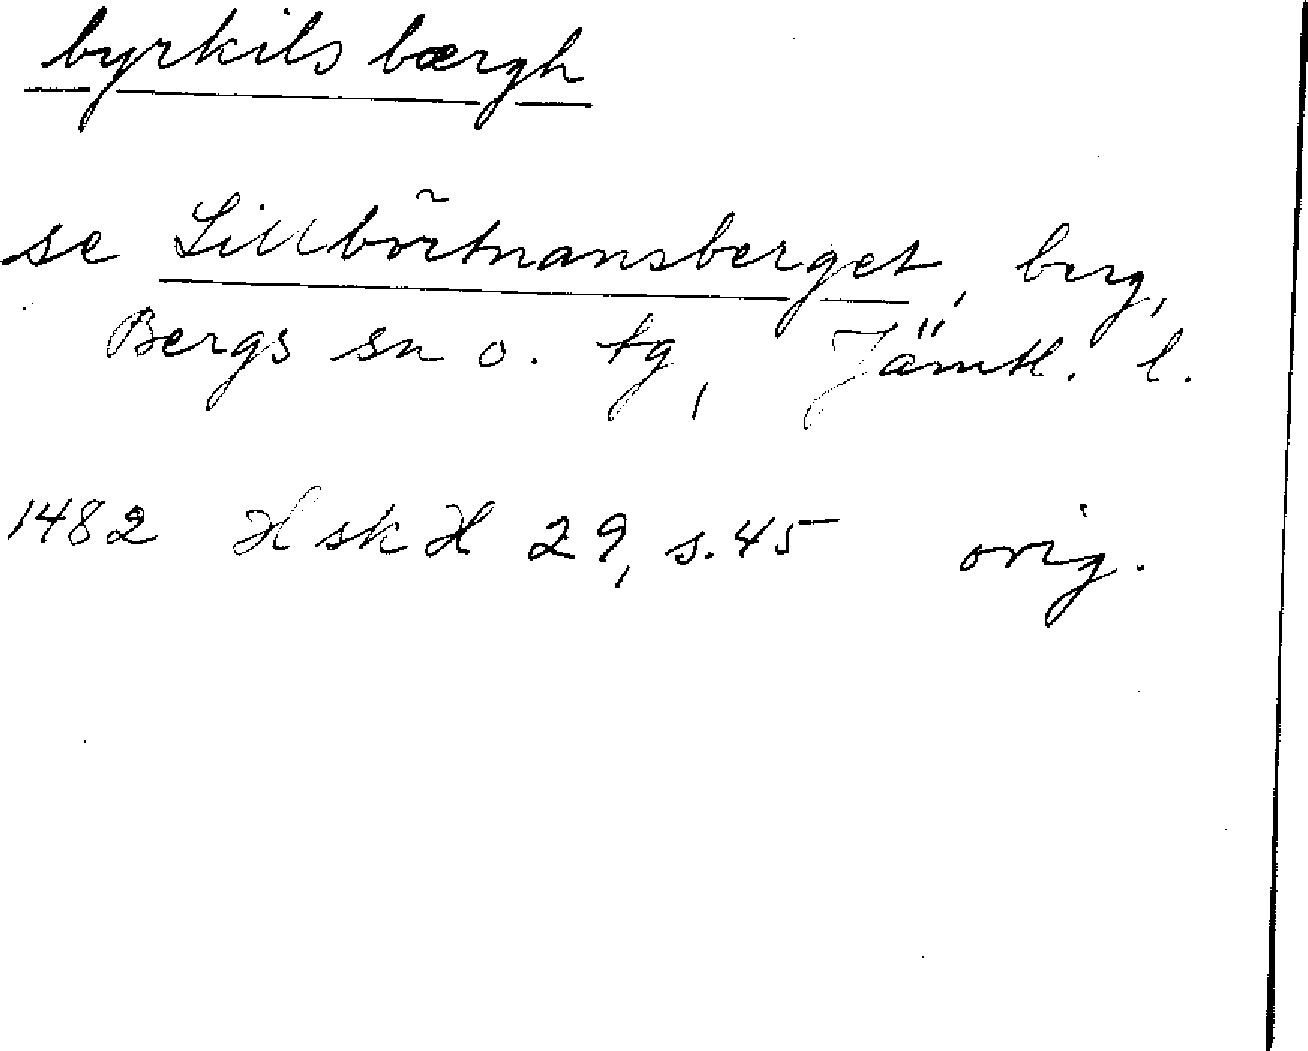 byrkils bærgh
se Lillbörtnansberget, berg,
Bergs sn o. tg, Jämtl. l.
1482 HskH 29, s. 45 orig.